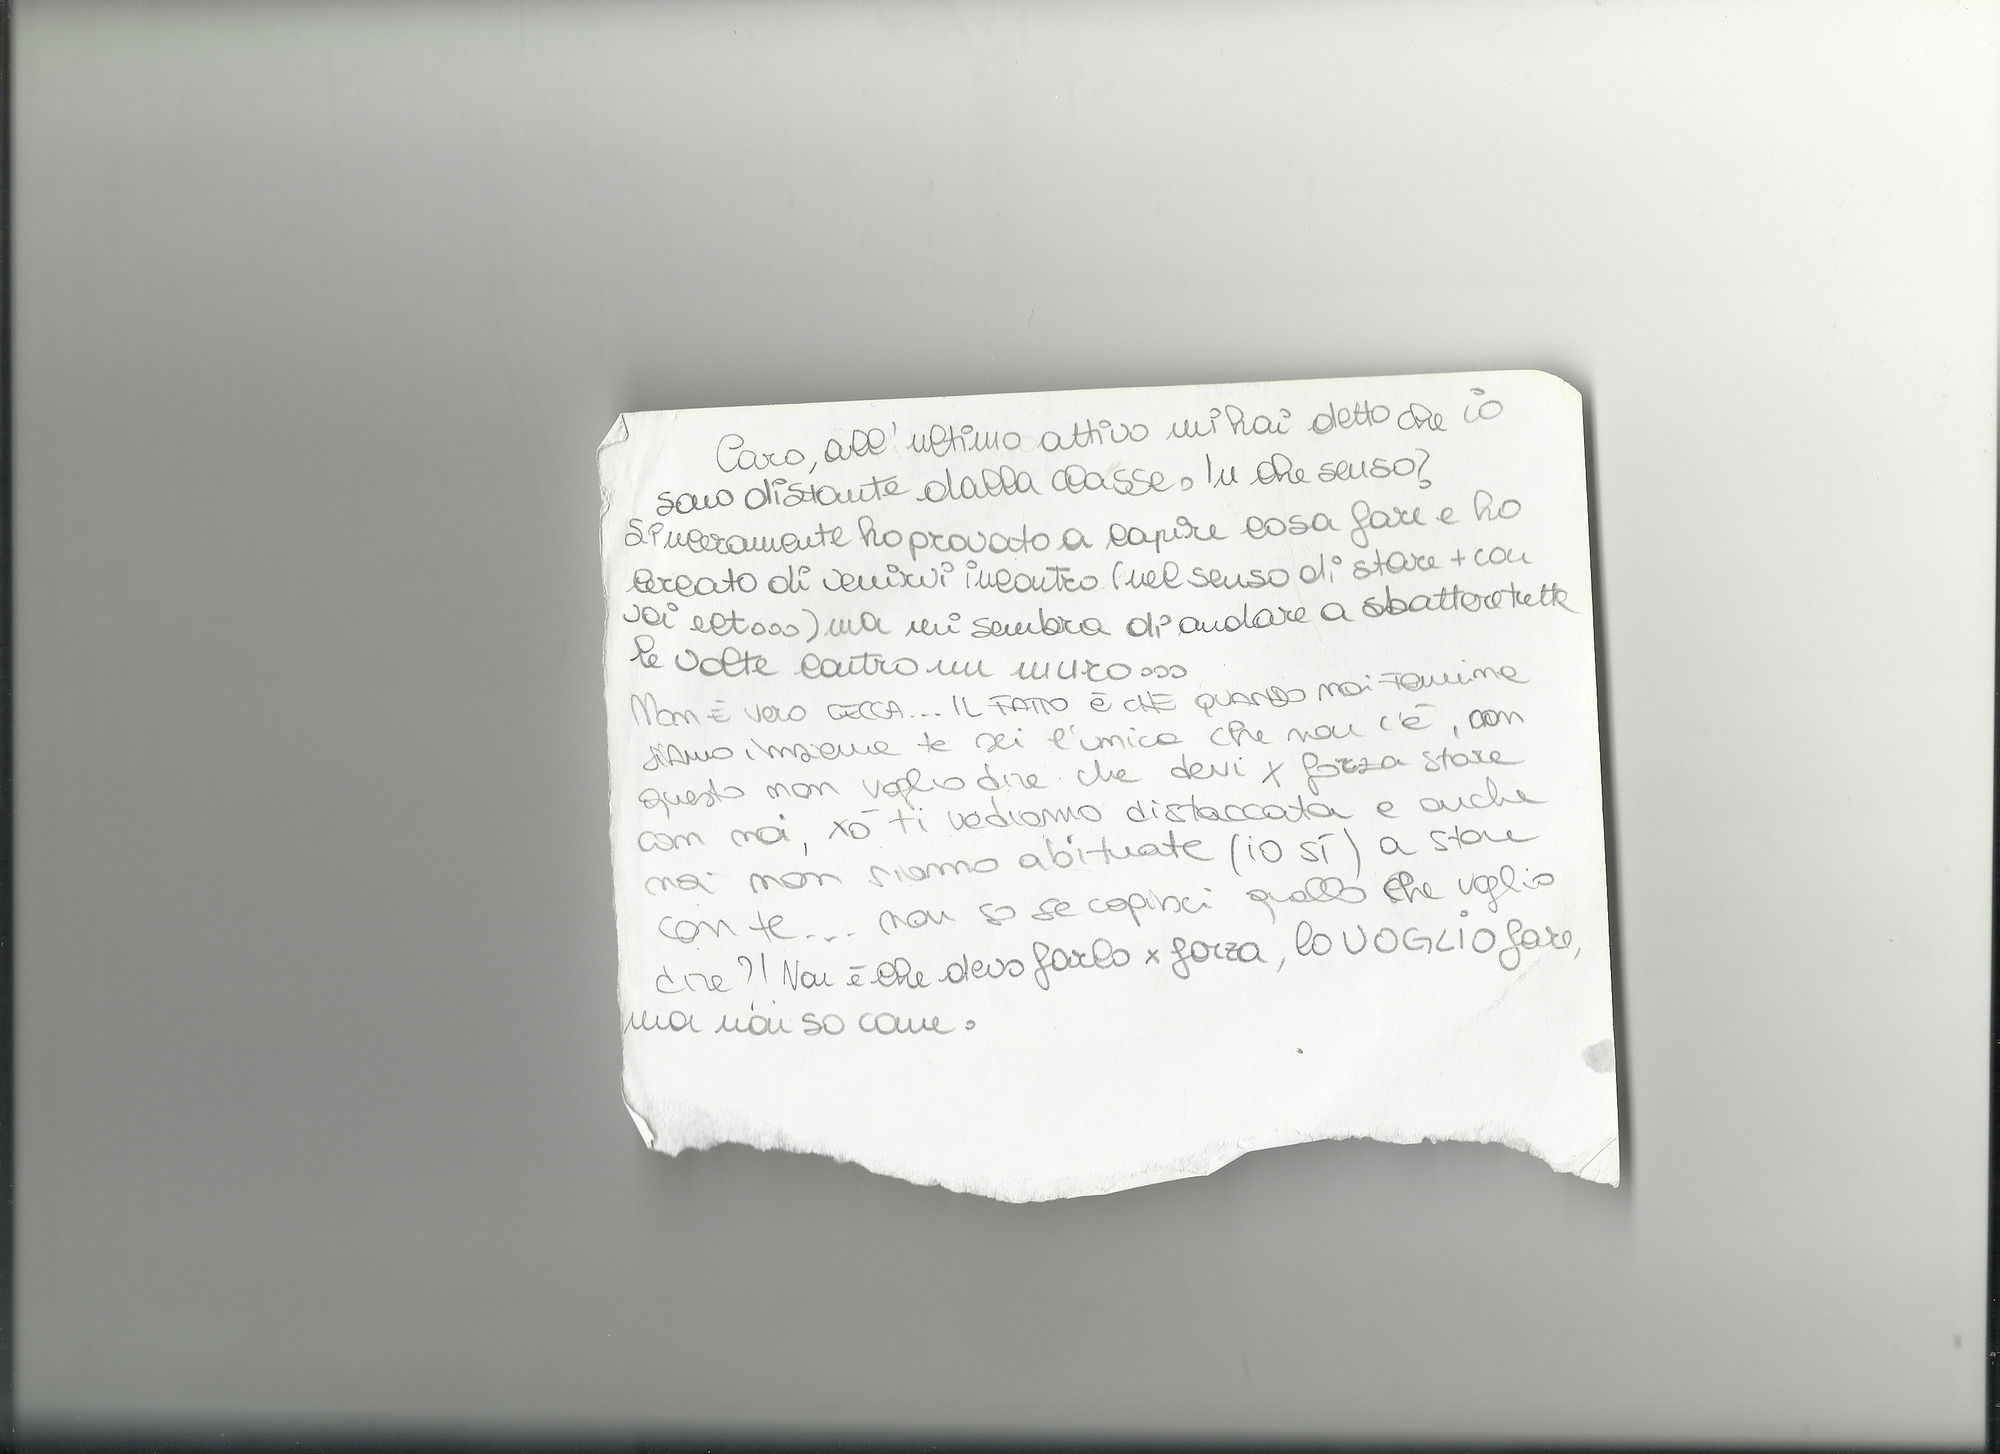 Caro, all'ultimo attivo mi hai detto che io
sono distante dalla classe. In che senso?
Sinceramente ho provato a capire cosa fare e ho
cercato di venirvi incontro (nel senso di stare + con
voi ect...) ma mi sembra di andare a sbattere tutte
le volte contro un muro...
Non è vero CECCA... IL FATTO È CHE QUANDO noi femmine
siamo insieme te sei l'unica che non c'è, con
questo non voglio dire che devi x forza stare
con noi, xò ti vediamo distaccata e anche
noi non siamo abituate (io sì) a stare
con te... non so se capisci quello che voglio
dire?! Non è che devo farlo x forza, lo VOGLIO fare,
ma non so come.